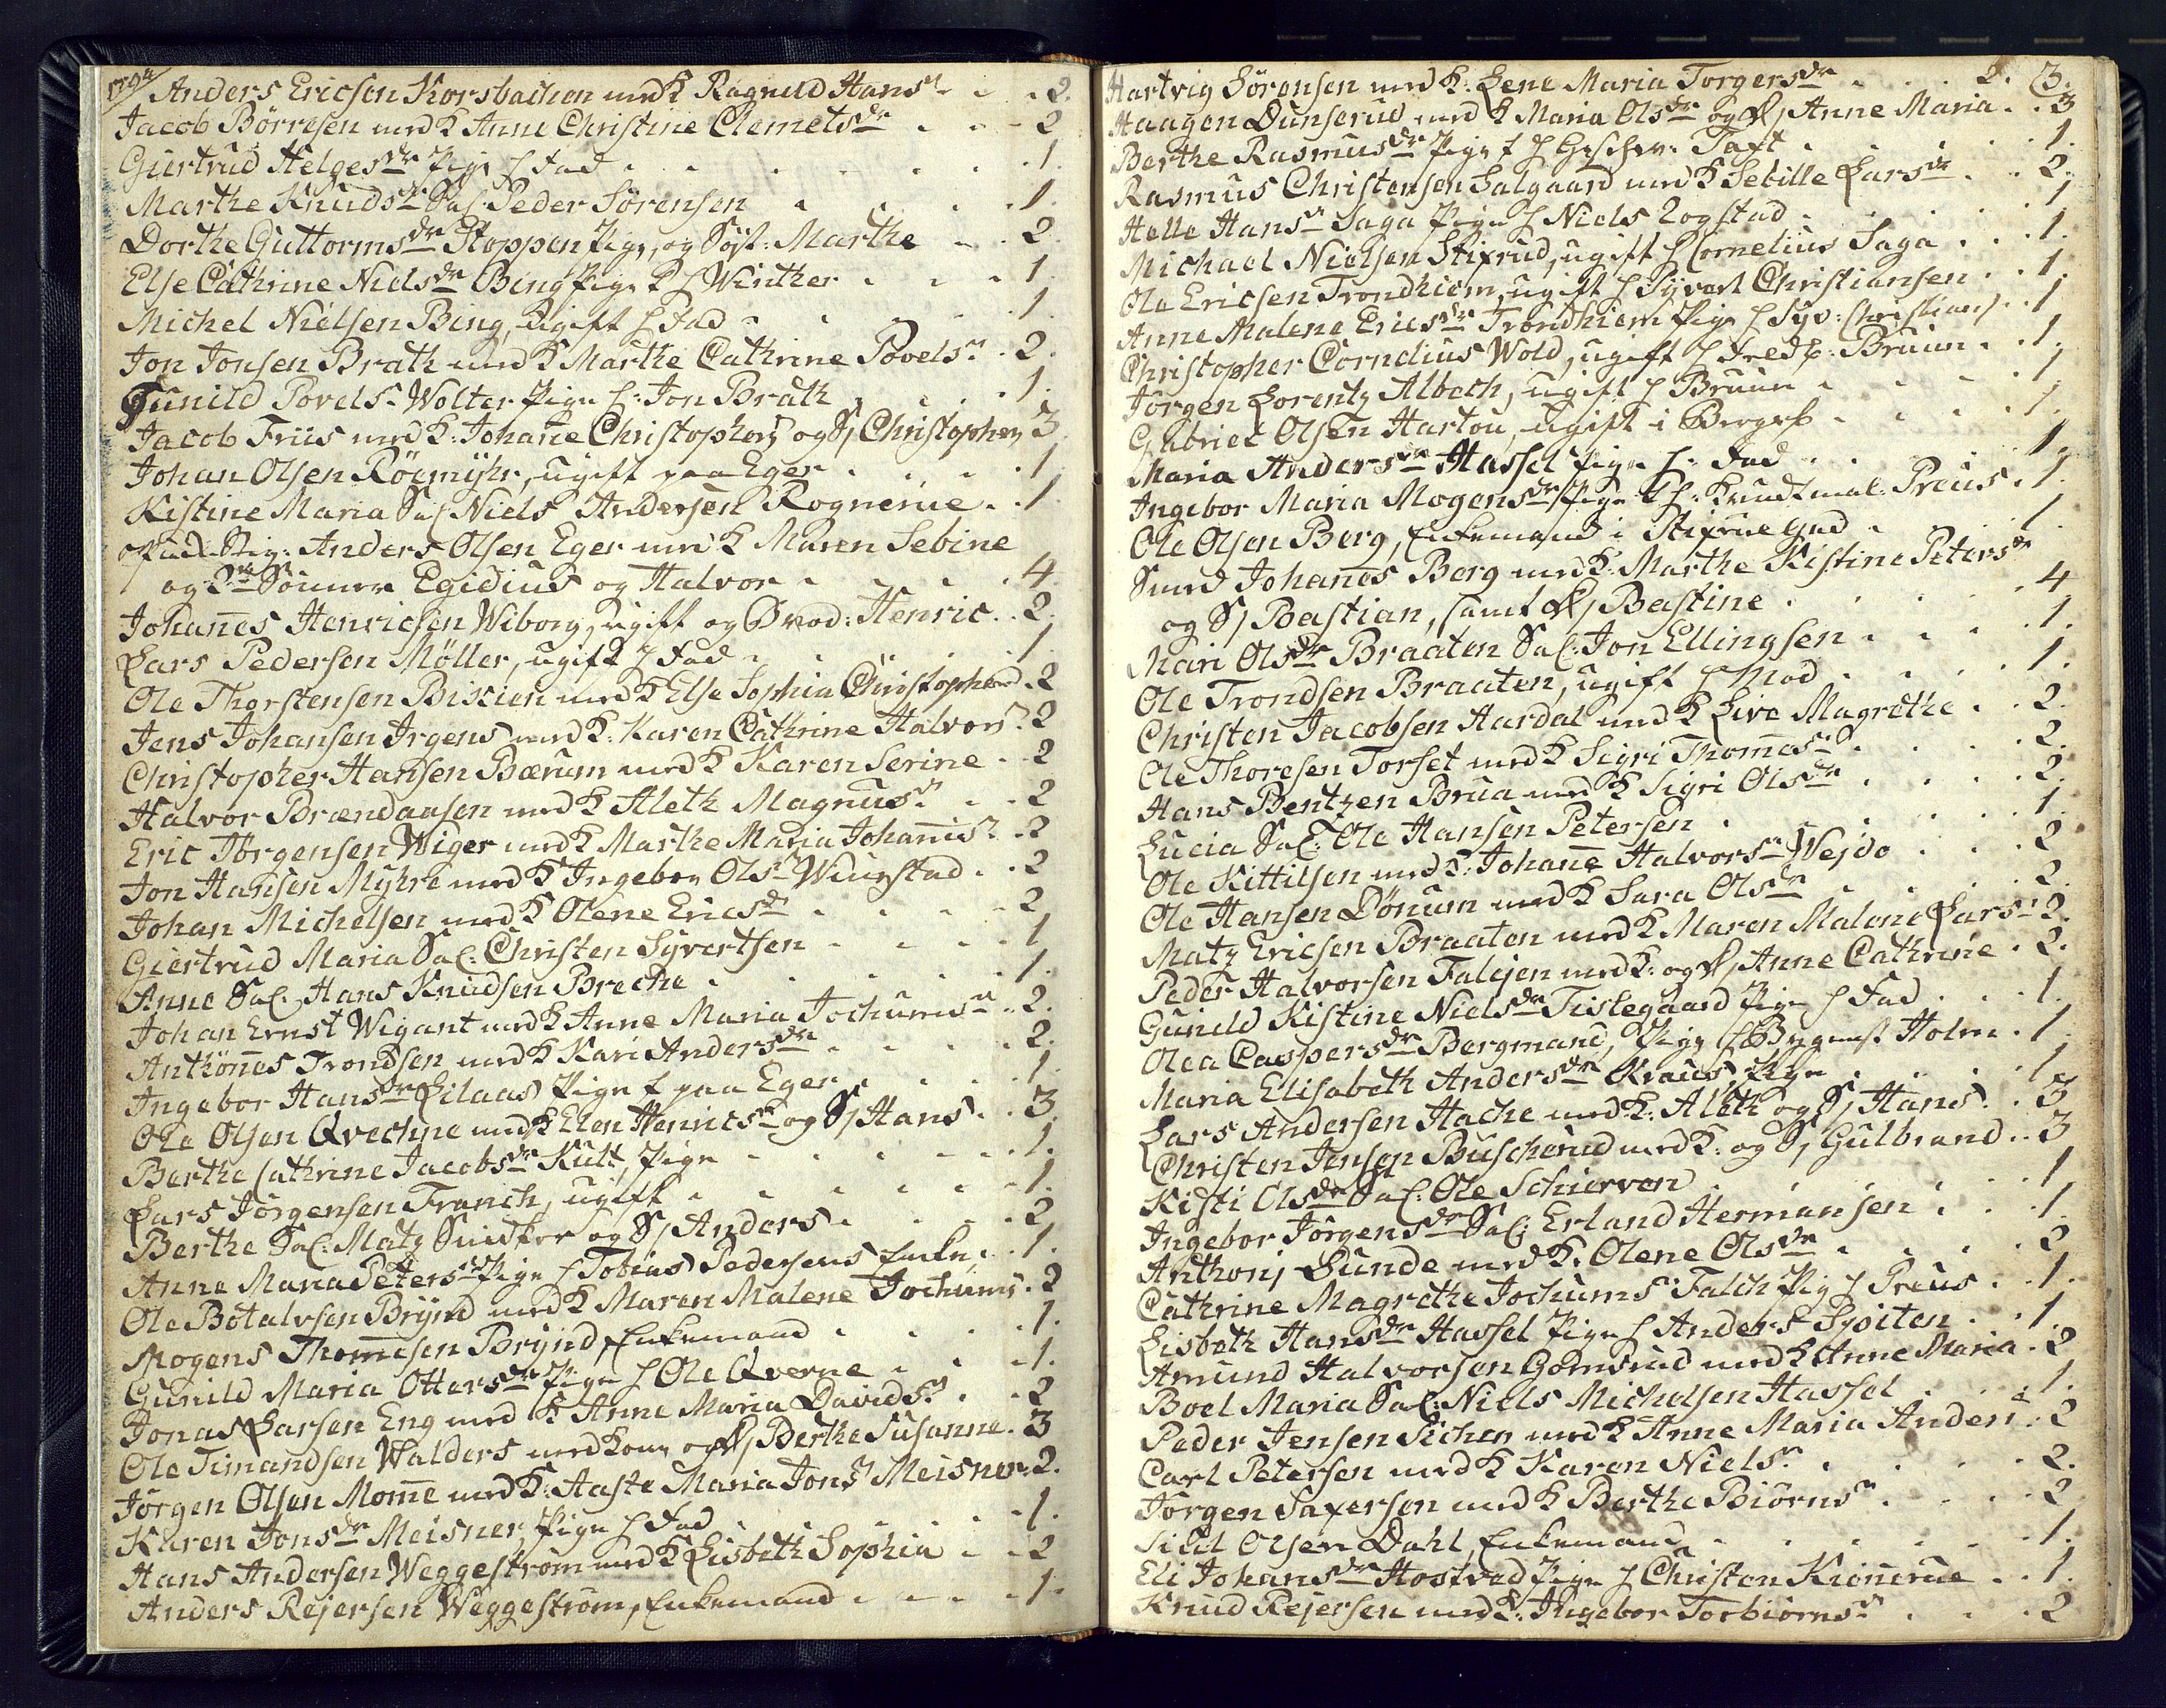 1794
Anders Ericsen Korsbachen med K Ragnild Hansdr . . 2.
Jacob Börresen med K Anne Christine Clemetsdr . . 2
Giertrud Helgesdr Pige h Fad . . . 1.
Marthe Knudsdr Sal: Peder Sörensen . . . 1.
Dorthe Guttormsdr Stoppen Pige, og Syst: Marthe . . 2.
Else Cathrine Nielsdr Bing Pige h Winther . . . 1.
Michel Nielsen Bing, ugift h Fad . . . 1.
Jon Jonsen Brath med K Marthe Cathrine Povelsdr . 2.
Gunild Povelsdr Wolter Pige h: Jon Brath . . . 1.
Jacob Friis med K: Johane Christophers og S/ Christopher 3
Johan Olsen Röemyhr, ugift paa Eger . . . 1.
Kistine Maria Sal Niels Andersen Rognerue . . 1
Anders Olsen Eger med K Maren Sebine
og 2de Sönner Egidius og Halvor . . . 4.
Johanes Henricsen Wiborg, ugift og Brod: Henric . . 2.
Lars Pedersen Möller, ugift h Fad . . . 1.
Ole Thorstensen Biskien med K Else Sophia Christophersd . 2
Jens Johansen Irgens med K: Karen Cathrine Halvorsd . 2
Christopher Hansen Bærum med K Karen Serine . . 2
Halvor Brændaasen med K Aleth Magnusdr . . 2
Eric Jörgensen Wiger med K Marthe Maria Johanisdr . 2
Jon Hansen Myhre med K Ingebor Olsdr Wiugstad . . 2
Johan Michelsen med K Olene Ericsdr . . . 2
Giertrud Maria Sal: Christen Syvertsen . . . 1
Anne Sal: Hans Knudsen Breche . . . 1.
Johan Ernst Wigant med K Anne Maria Jochumsdr . 2.
Anthönes Trondsen med K Kari Andersdr . . . 2.
Ingebor Hansdr Lilaas Pige paa Eger . . . 1.
Ole Olsen Qvechne med K Elen Henricsdr og S/ Hans . . 3
Berthe Cathrine Jacobsdr Kult, Pige . . . 1.
Lars Jörgensen Franch, ugift . . . 1.
Berthe Sal: Matz Snidker og S/ Anders . . . 2
Anne Maria Petersdr Pige h Tobias Pedersens Enke . . 1.
Ole Botalvsen Brynd med K Maren Malene Jochums . 2
Mogens Thomesen Brynd, Enkemand . . . 1.
Gunild Maria Ottersdr Pige h Ole Qverne . . . 1.
Jonas Larsen Eng med K Anne Maria Davidsdr . . 2
Ole Timandsen Walders med Kone og D/ Berthe Susanne . 3
Jörgen Olsen Mome med K: Aaste Maria Jonsdr Meisner . 2.
Karen Jonsdr Meisner, Pige h Fad . . . 1.
Hans Andersen Weggeström med K Lisbeth Sophia . . 2
Anders Rejersen Weggeström, Enkemand . . . 1.
3.
Hartvig Sörensen med K: Lene Maria Torgersdr . . . 2.
Haagen Dunserud med K Maria Olsdr og D/ Anne Maria . . 3
Berthe Rasmusdr Pige h Taxt . . . 1.
Rasmus Christensen Salgaard med K Sebille Larsdr . . 2.
Helle Hansdr Saga Pige h Niels Logstad . . . 1
Michael Nielsen Stixrud, ugift h Cornelius Saga . . . 1.
Ole Ericsen Trondhiem, ugift h Syvert Christiansen . . 1.
Anne Malene Ericsdr Trondhiem Pige h Syv: Christians . . 1
Christopher Cornelius Wold, ugift h Bruun . . 1.
Jörgen Lorentz Albech, ugift h Bruun . . . 1
Gabriel Olsen Hartou, ugift i Berget . . . 1.
Maria Andersdr Hassel Pige h: Fad . . . 1
Ingebor Maria Mogensdr Pige h: Preus . 1.
Ole Olsen Berg, Enkemand i . . . 1.
Smed Johanes Berg med K: Marthe Kistine Petersdr
og S/ Bastian, samt D/ Bastine . . . 4
Mari Olsdr Braaten Sal: Jon Ellingsen . . . 1.
Ole Trondsen Braaten, ugift h Mod . . . 1.
Christen Jacobsen Aardal med K Live Magrethe . . 2.
Ole Thoresen Torset med K Sigri Thomesdr . . . 2.
Hans Bentzen Brua med K Sigri Olsdr . . . 2.
Lucia Sal: Ole Hansen Petersen . . . 1.
Ole Kittilsen med K: Johane Halvorsdr Wejdo . . . 2
Ole Hansen Dönum med K Sara Olsdr . . . 2.
Matz Ericsen Braaten med K Maren Malene Larsdr 2.
Peder Halvorsen Falejen med K: og D/ Anne Cathrine . 2.
Gunild Kistine Nielsdr Tislegaard Pige h Fad . . . 1.
Olea Caspersdr Bergmand, Pige h Holm . 1.
Maria Elisabeth Andersdr Kraus Pige . . . 1.
Lars Andersen Hache med K: Aleth og S/ Hans . . 3
Christen Jensen Buscherud med K: og S/ Gulbrand . . 3
Kisti Olsdr Sal: Ole Schierven . . . 1
Ingebor Jörgensdr Sal: Erland Hermansen . . . 1.
Anthonj Lunde med K: Olene Olsdr . . . 2
Cathrine Magrethe Jochumsdr Falch Pig h Preus . . 1.
Lisbeth Hansdr Hassel Pige h Anders Spiten . . 1.
Amund Halvorsen Gomsrud med K Anne Maria . 2
Boel Maria Sal: Niels Michelsen Hassel . . . 1.
Peder Jensen Sichen med K Anne Maria Andersdr . 2
Carl Petersen med K Karen Nielsdr . . . 2.
Jörgen Saxersen med K Berthe Biörnsdr . . . 2
Olsen Dahl, Enkemand . . . 1.
Eli Johansdr Hostved Pige h Christen Kionerue . . 1.
Knud Rejersen med K: Ingebor Torbiörnsdr . . . 2